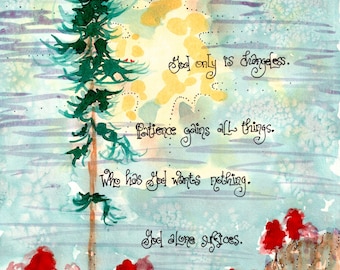 God only is changeless.
Patience gains all things.
Who has God wants nothing.
God alone suffices.